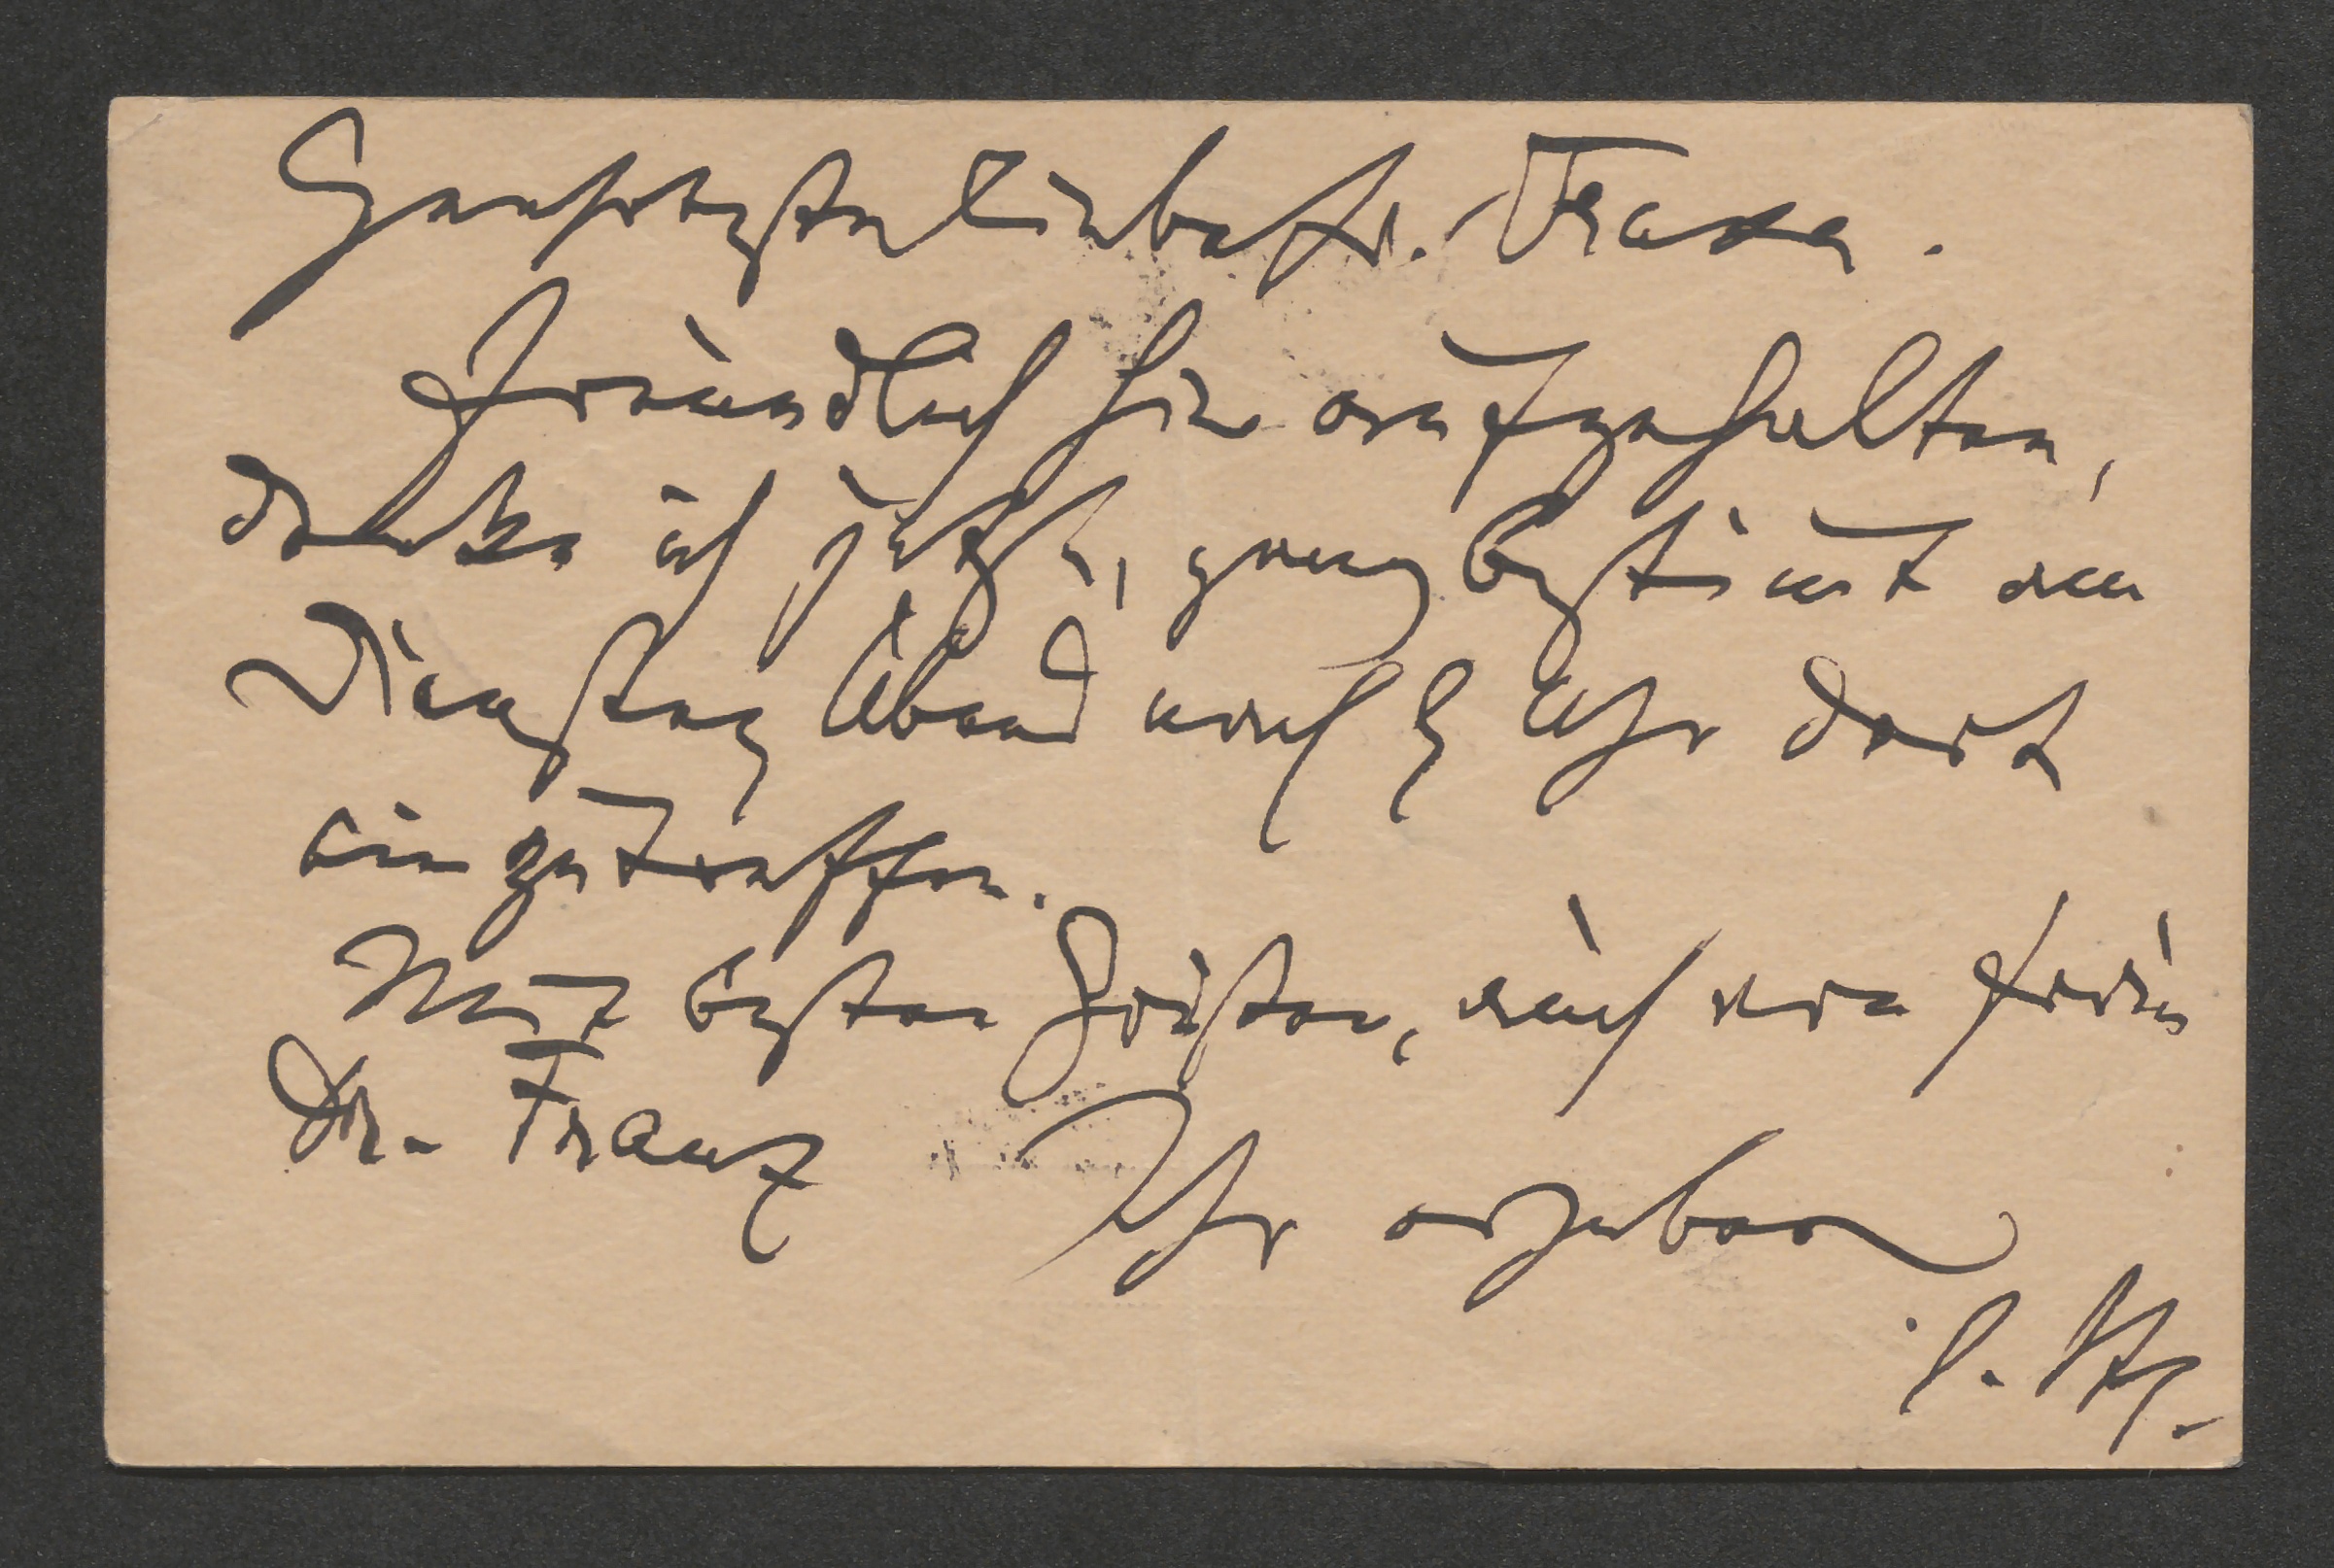 Hochgeehrter lieber Dr. Franz.
Freundlich hier aufgehalten,
denke ich jetzt, ganz bestimt am
Dienstag Abend nach Uhr dort
einzutreffen.
Mit besten Grüßen, auch an Frau
Dr. Franz
Ihr ergebener